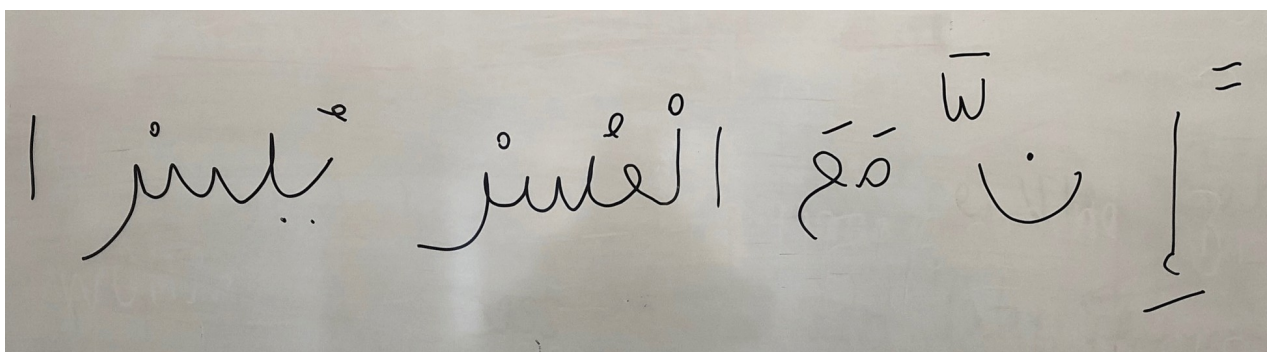 إِنَّ مَعَ الْعُسْر يُسْرا